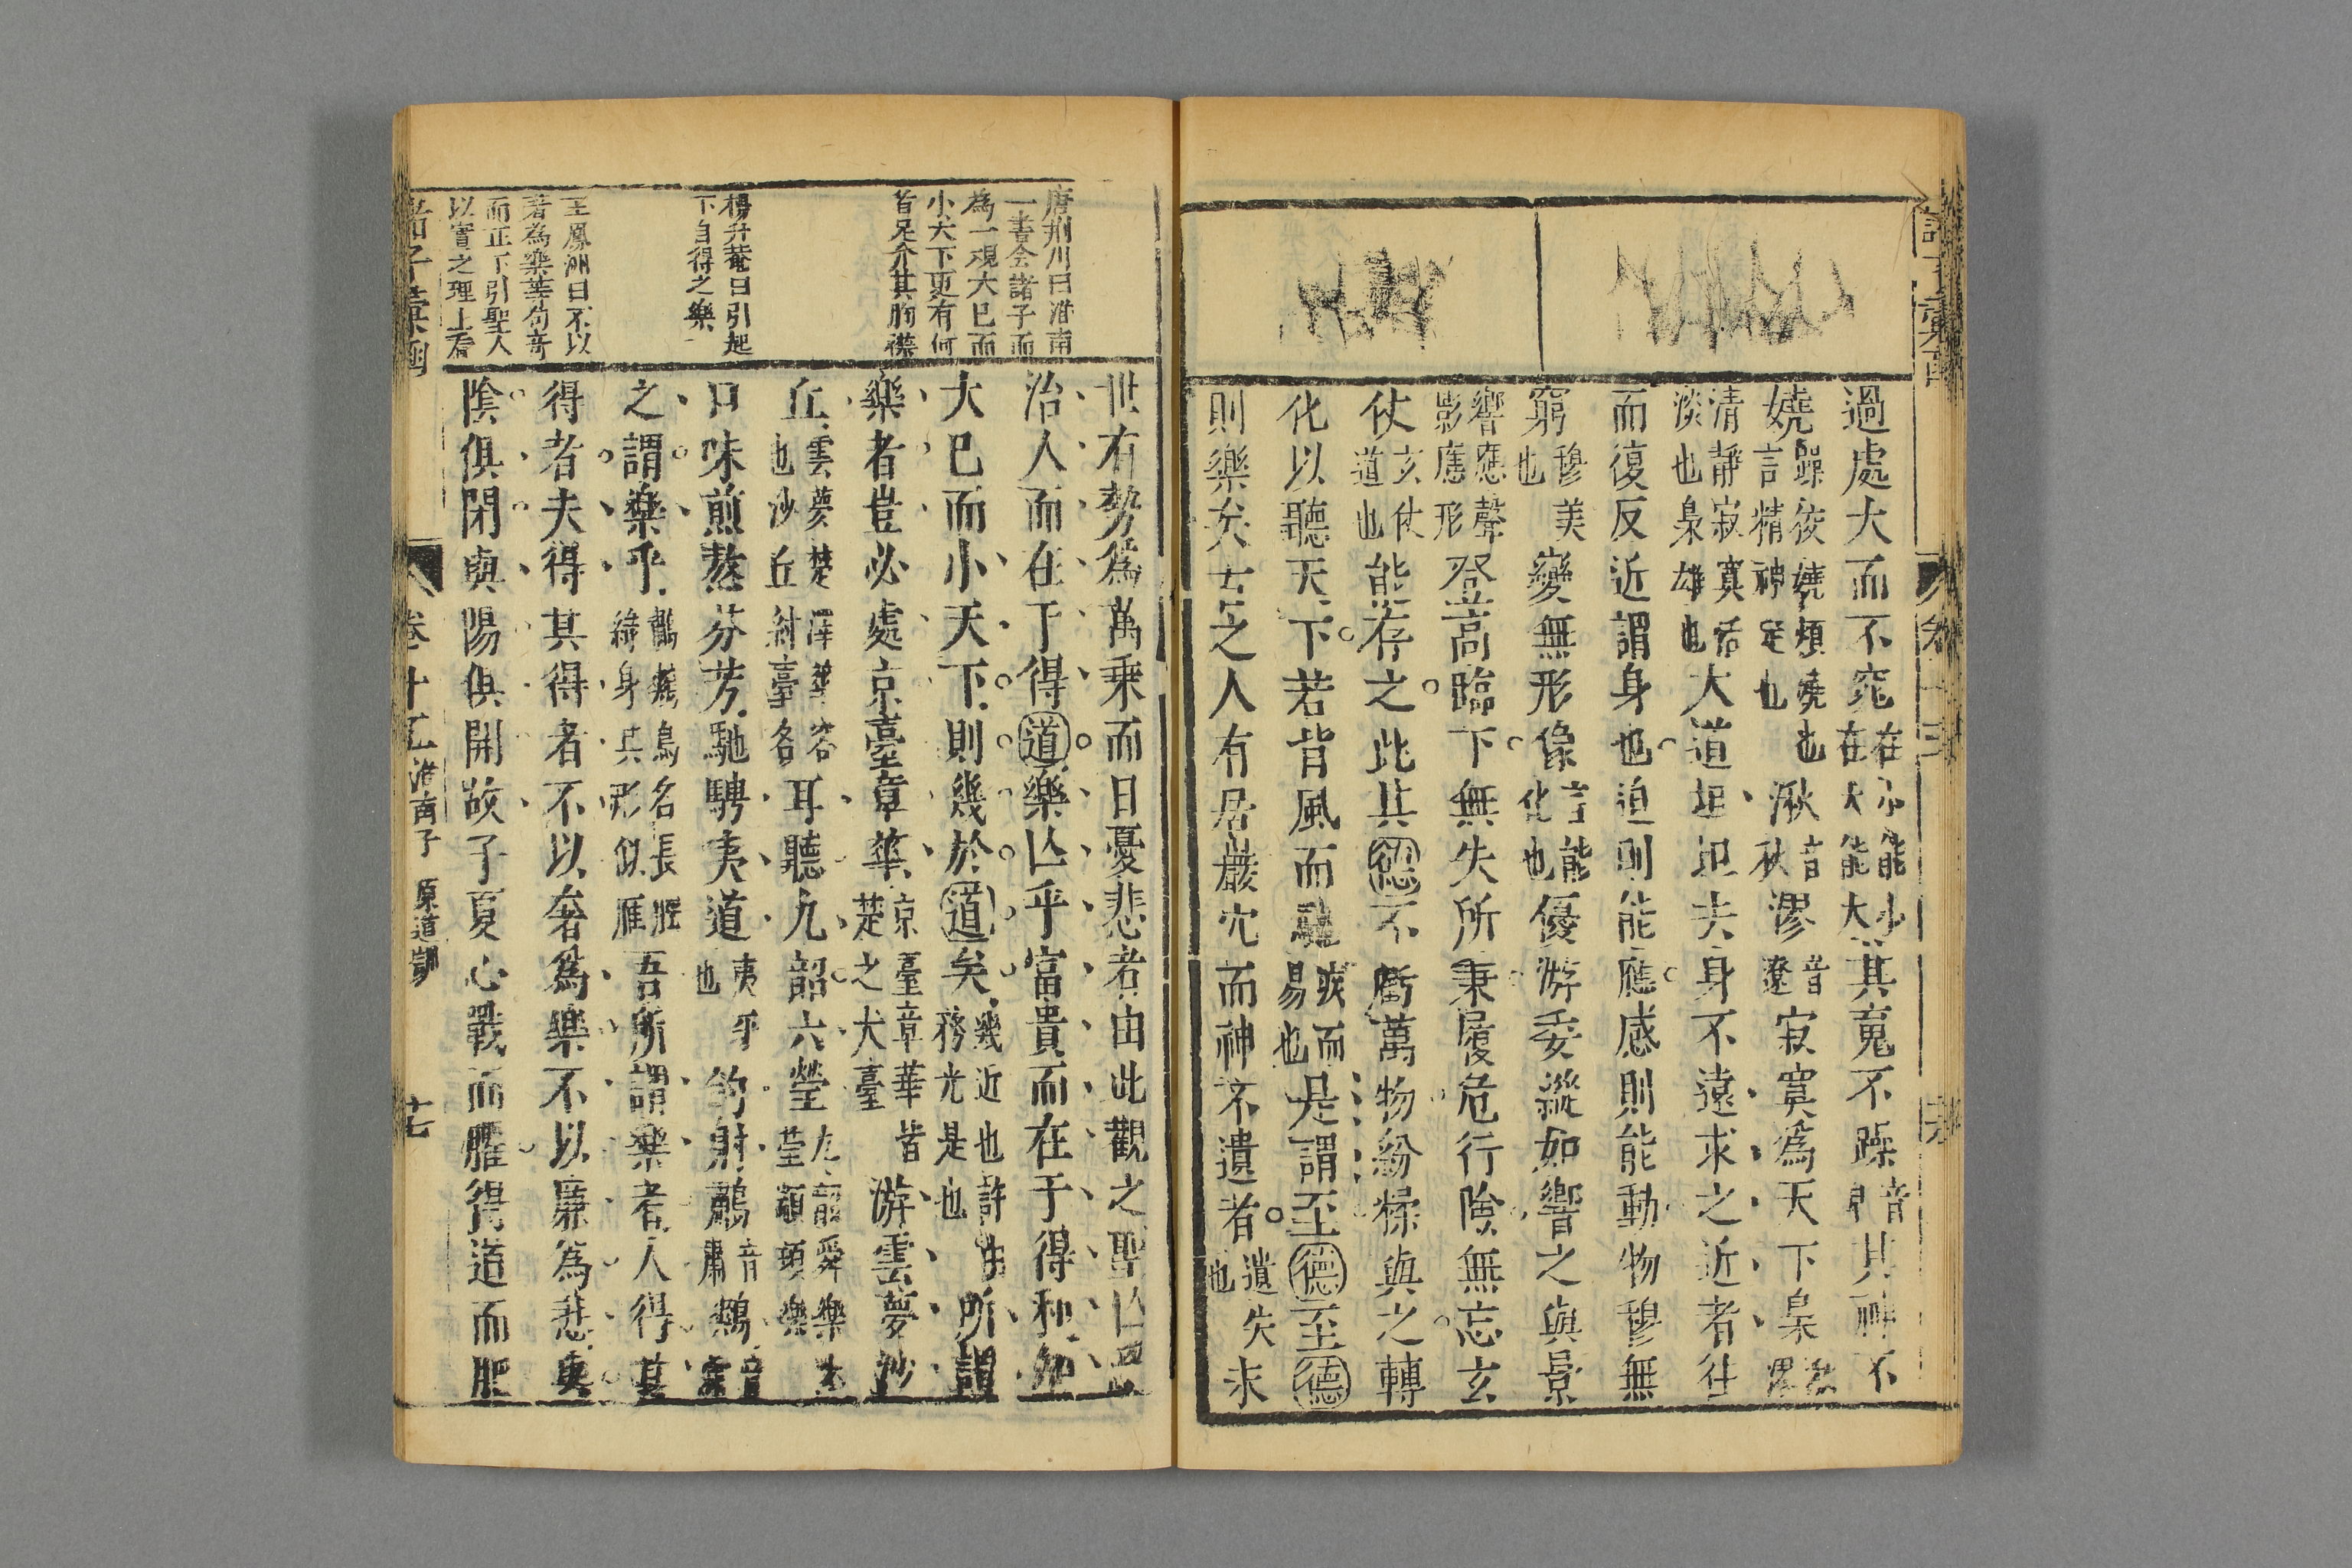 過處大而不窕在小能小在大能大其䰟不躁音其神不
嬈躁狡嬈煩嬈也言精神定也湫音秋漻音遼寂寞爲天下梟
清靜寂寞恬淡也梟雄也大道坦坦去身不遠求之近者往
而復反近謂身也迫則能應感則能動物穆無
窮穆美也變無形像言能化也優游委縱如響之與景
響應聲影應形登高臨下無失所秉履危行險無忘玄
仗玄仗道也能存之此其德不虧萬物紛糅與之轉
化以聽天下若背風而馳疾而易也是謂至德至德
則樂矣古之人有居巖穴而神不遺者遺失也末
唐荆川曰淮南
一書会諸子而
為一視大巳而
小天下更有何
者足介其胸襟
楊升菴曰引起
下自得之樂
王鳳洲曰不以
奢為樂華句哥
而正下引聖人
以實之理上看
世有勢爲萬乘而日憂悲者由此觀之聖亾
治人而在于得道樂亾乎富貴而在于得和知
大巳而小天下則幾於道矣幾近也許由務光是也所謂
樂者豈必處京臺章華京臺章華皆楚之大臺游雲夢沙
丘雲夢楚澤華容也沙丘紂臺名耳聽九韶六瑩九韶舜樂六瑩顓頊樂
口味煎熬芬芳馳騁夷道夷平也釣射鷫音肅鷞音霜
之謂樂乎鷫鷞鳥名長脛綠身其形似雁吾所謂樂者人得其
得者夫得其得者不以奢爲樂不以廉爲悲與
陰俱閉與陽俱開故子夏心戰而臞得道而肥
卷十五 淮南子 原道訓 十七